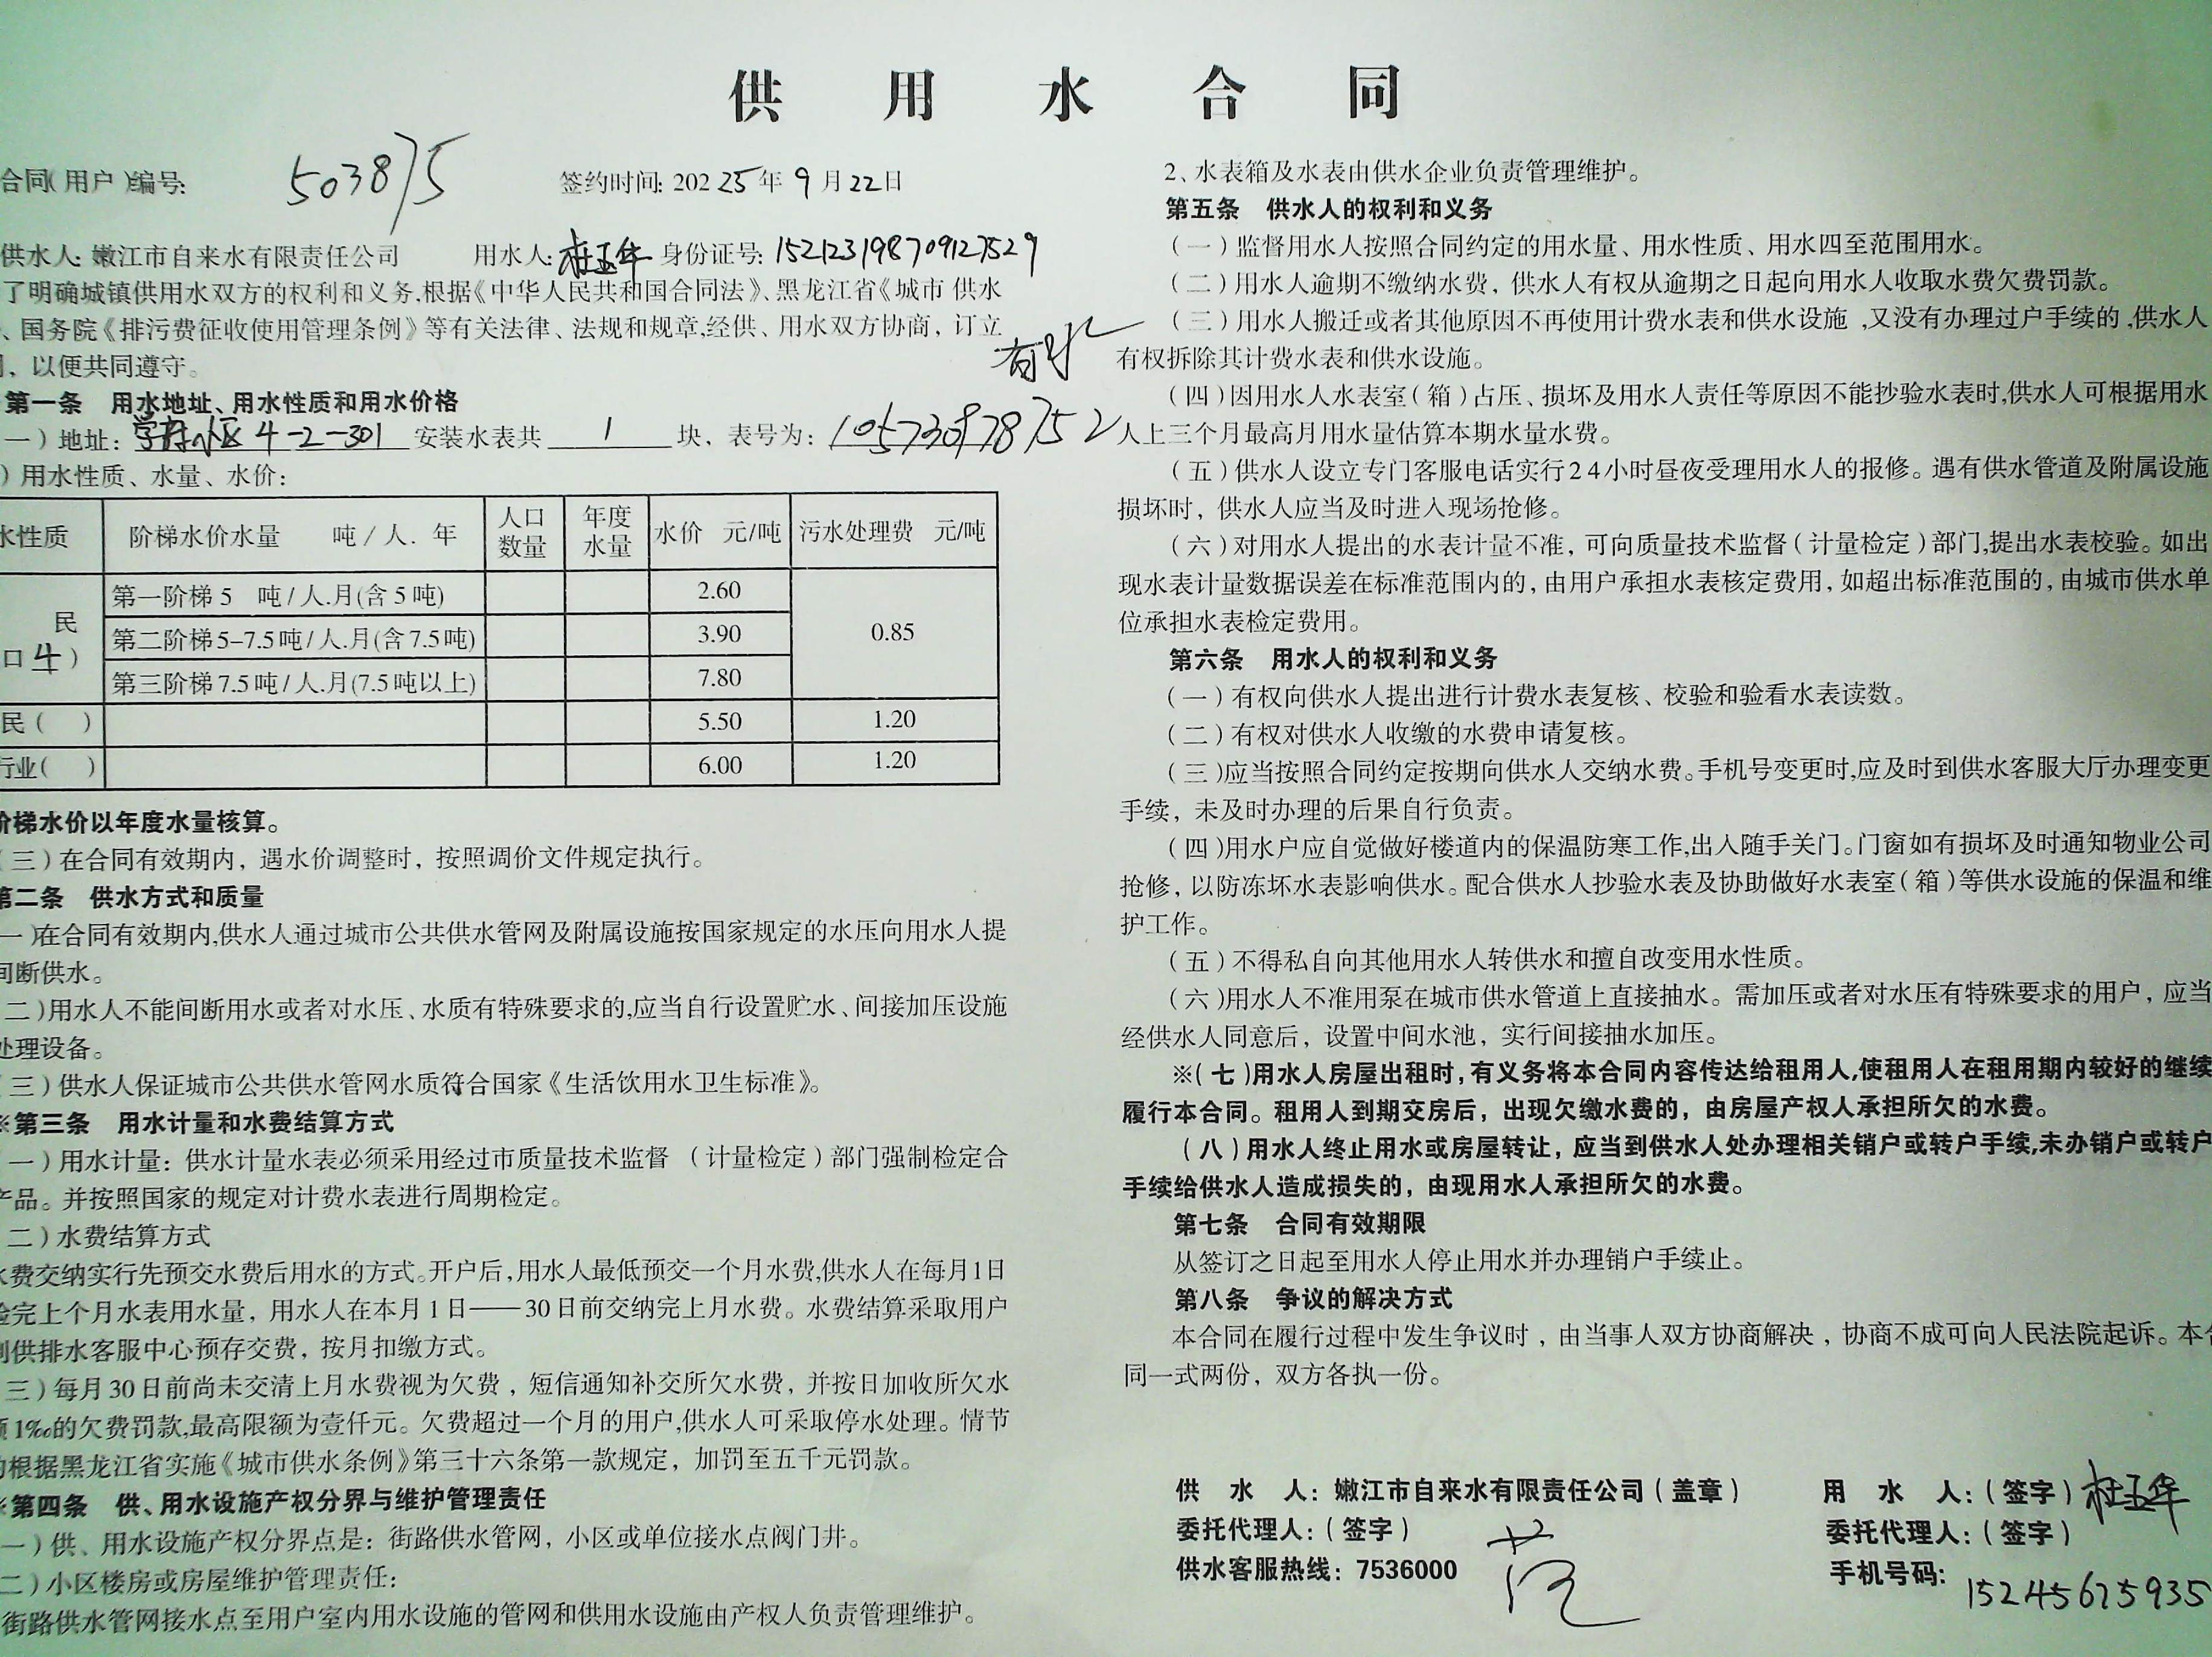 供用水合同
合同(用户)编号: 503875 签约时间: 20225年9月22日
供水人: 嫩江市自来水有限责任公司 用水人: 杜玉华 身份证号: 152123198709127529
了明确城镇供用水双方的权利和义务,根据《中华人民共和国合同法》、黑龙江省《城市 供水
、国务院《排污费征收使用管理条例》等有关法律、法规和规章,经供、用水双方协商，订立
，以便共同遵守。
第一条 用水地址、用水性质和用水价格
一）地址: 学府小区4-2-301 安装水表共 1 块，表号为:
）用水性质、水量、水价:
水性质 阶梯水价水量 吨/人.年 人口数量 年度水量 水价 元/吨 污水处理费 元/吨
民
口4）
第一阶梯 5 吨/人.月(含5吨) 2.60
第二阶梯5-7.5吨/人.月(含7.5吨) 3.90 0.85
第三阶梯7.5吨/人.月(7.5吨以上) 7.80
民（ ） 5.50 1.20
行业（ ） 6.00 1.20
阶梯水价以年度水量核算。
（三）在合同有效期内，遇水价调整时，按照调价文件规定执行。
第二条 供水方式和质量
一）在合同有效期内,供水人通过城市公共供水管网及附属设施按国家规定的水压向用水人提
间断供水。
二）用水人不能间断用水或者对水压、水质有特殊要求的,应当自行设置贮水、间接加压设施
处理设备。
三）供水人保证城市公共供水管网水质符合国家《生活饮用水卫生标准》。
※第三条 用水计量和水费结算方式
一）用水计量：供水计量水表必须采用经过市质量技术监督 （计量检定）部门强制检定合
产品。并按照国家的规定对计费水表进行周期检定。
二）水费结算方式
水费交纳实行先预交水费后用水的方式。开户后,用水人最低预交一个月水费,供水人在每月1日
验完上个月水表用水量，用水人在本月1日——30日前交纳完上月水费。水费结算采取用户
到供排水客服中心预存交费，按月扣缴方式。
三）每月30日前尚未交清上月水费视为欠费，短信通知补交所欠水费，并按日加收所欠水
额1‰的欠费罚款,最高限额为壹仟元。欠费超过一个月的用户,供水人可采取停水处理。情节
的根据黑龙江省实施《城市供水条例》第三十六条第一款规定，加罚至五千元罚款。
※第四条 供、用水设施产权分界与维护管理责任
一）供、用水设施产权分界点是：街路供水管网，小区或单位接水点阀门井。
二）小区楼房或房屋维护管理责任:
街路供水管网接水点至用户室内用水设施的管网和供用水设施由产权人负责管理维护。
2、水表箱及水表由供水企业负责管理维护。
第五条 供水人的权利和义务
（一）监督用水人按照合同约定的用水量、用水性质、用水四至范围用水。
（二）用水人逾期不缴纳水费，供水人有权从逾期之日起向用水人收取水费欠费罚款。
（三）用水人搬迁或者其他原因不再使用计费水表和供水设施,又没有办理过户手续的,供水人
有权拆除其计费水表和供水设施。
（四）因用水人水表室（箱）占压、损坏及用水人责任等原因不能抄验水表时,供水人可根据用水
人上三个月最高月用水量估算本期水量水费。
（五）供水人设立专门客服电话实行24小时昼夜受理用水人的报修。遇有供水管道及附属设施
损坏时，供水人应当及时进入现场抢修。
（六）对用水人提出的水表计量不准，可向质量技术监督（计量检定）部门,提出水表校验。如出
现水表计量数据误差在标准范围内的，由用户承担水表核定费用，如超出标准范围的，由城市供水单
位承担水表检定费用。
第六条 用水人的权利和义务
（一）有权向供水人提出进行计费水表复核、校验和验看水表读数。
（二）有权对供水人收缴的水费申请复核。
（三）应当按照合同约定按期向供水人交纳水费。手机号变更时,应及时到供水客服大厅办理变更
手续，未及时办理的后果自行负责。
（四）用水户应自觉做好楼道内的保温防寒工作,出入随手关门。门窗如有损坏及时通知物业公司
抢修，以防冻坏水表影响供水。配合供水人抄验水表及协助做好水表室（箱）等供水设施的保温和维
护工作。
（五）不得私自向其他用水人转供水和擅自改变用水性质。
（六）用水人不准用泵在城市供水管道上直接抽水。需加压或者对水压有特殊要求的用户，应当
经供水人同意后，设置中间水池，实行间接抽水加压。
※（七）用水人房屋出租时，有义务将本合同内容传达给租用人,使租用人在租用期内较好的继续
履行本合同。租用人到期交房后，出现欠缴水费的，由房屋产权人承担所欠的水费。
（八）用水人终止用水或房屋转让，应当到供水人处办理相关销户或转户手续,未办销户或转户
手续给供水人造成损失的，由现用水人承担所欠的水费。
第七条 合同有效期限
从签订之日起至用水人停止用水并办理销户手续止。
第八条 争议的解决方式
本合同在履行过程中发生争议时，由当事人双方协商解决，协商不成可向人民法院起诉。本合
同一式两份，双方各执一份。
供水人：嫩江市自来水有限责任公司（盖章） 用水人：（签字）杜玉华
委托代理人：（签字） 范 委托代理人：（签字）
供水客服热线：7536000 手机号码: 15245675935